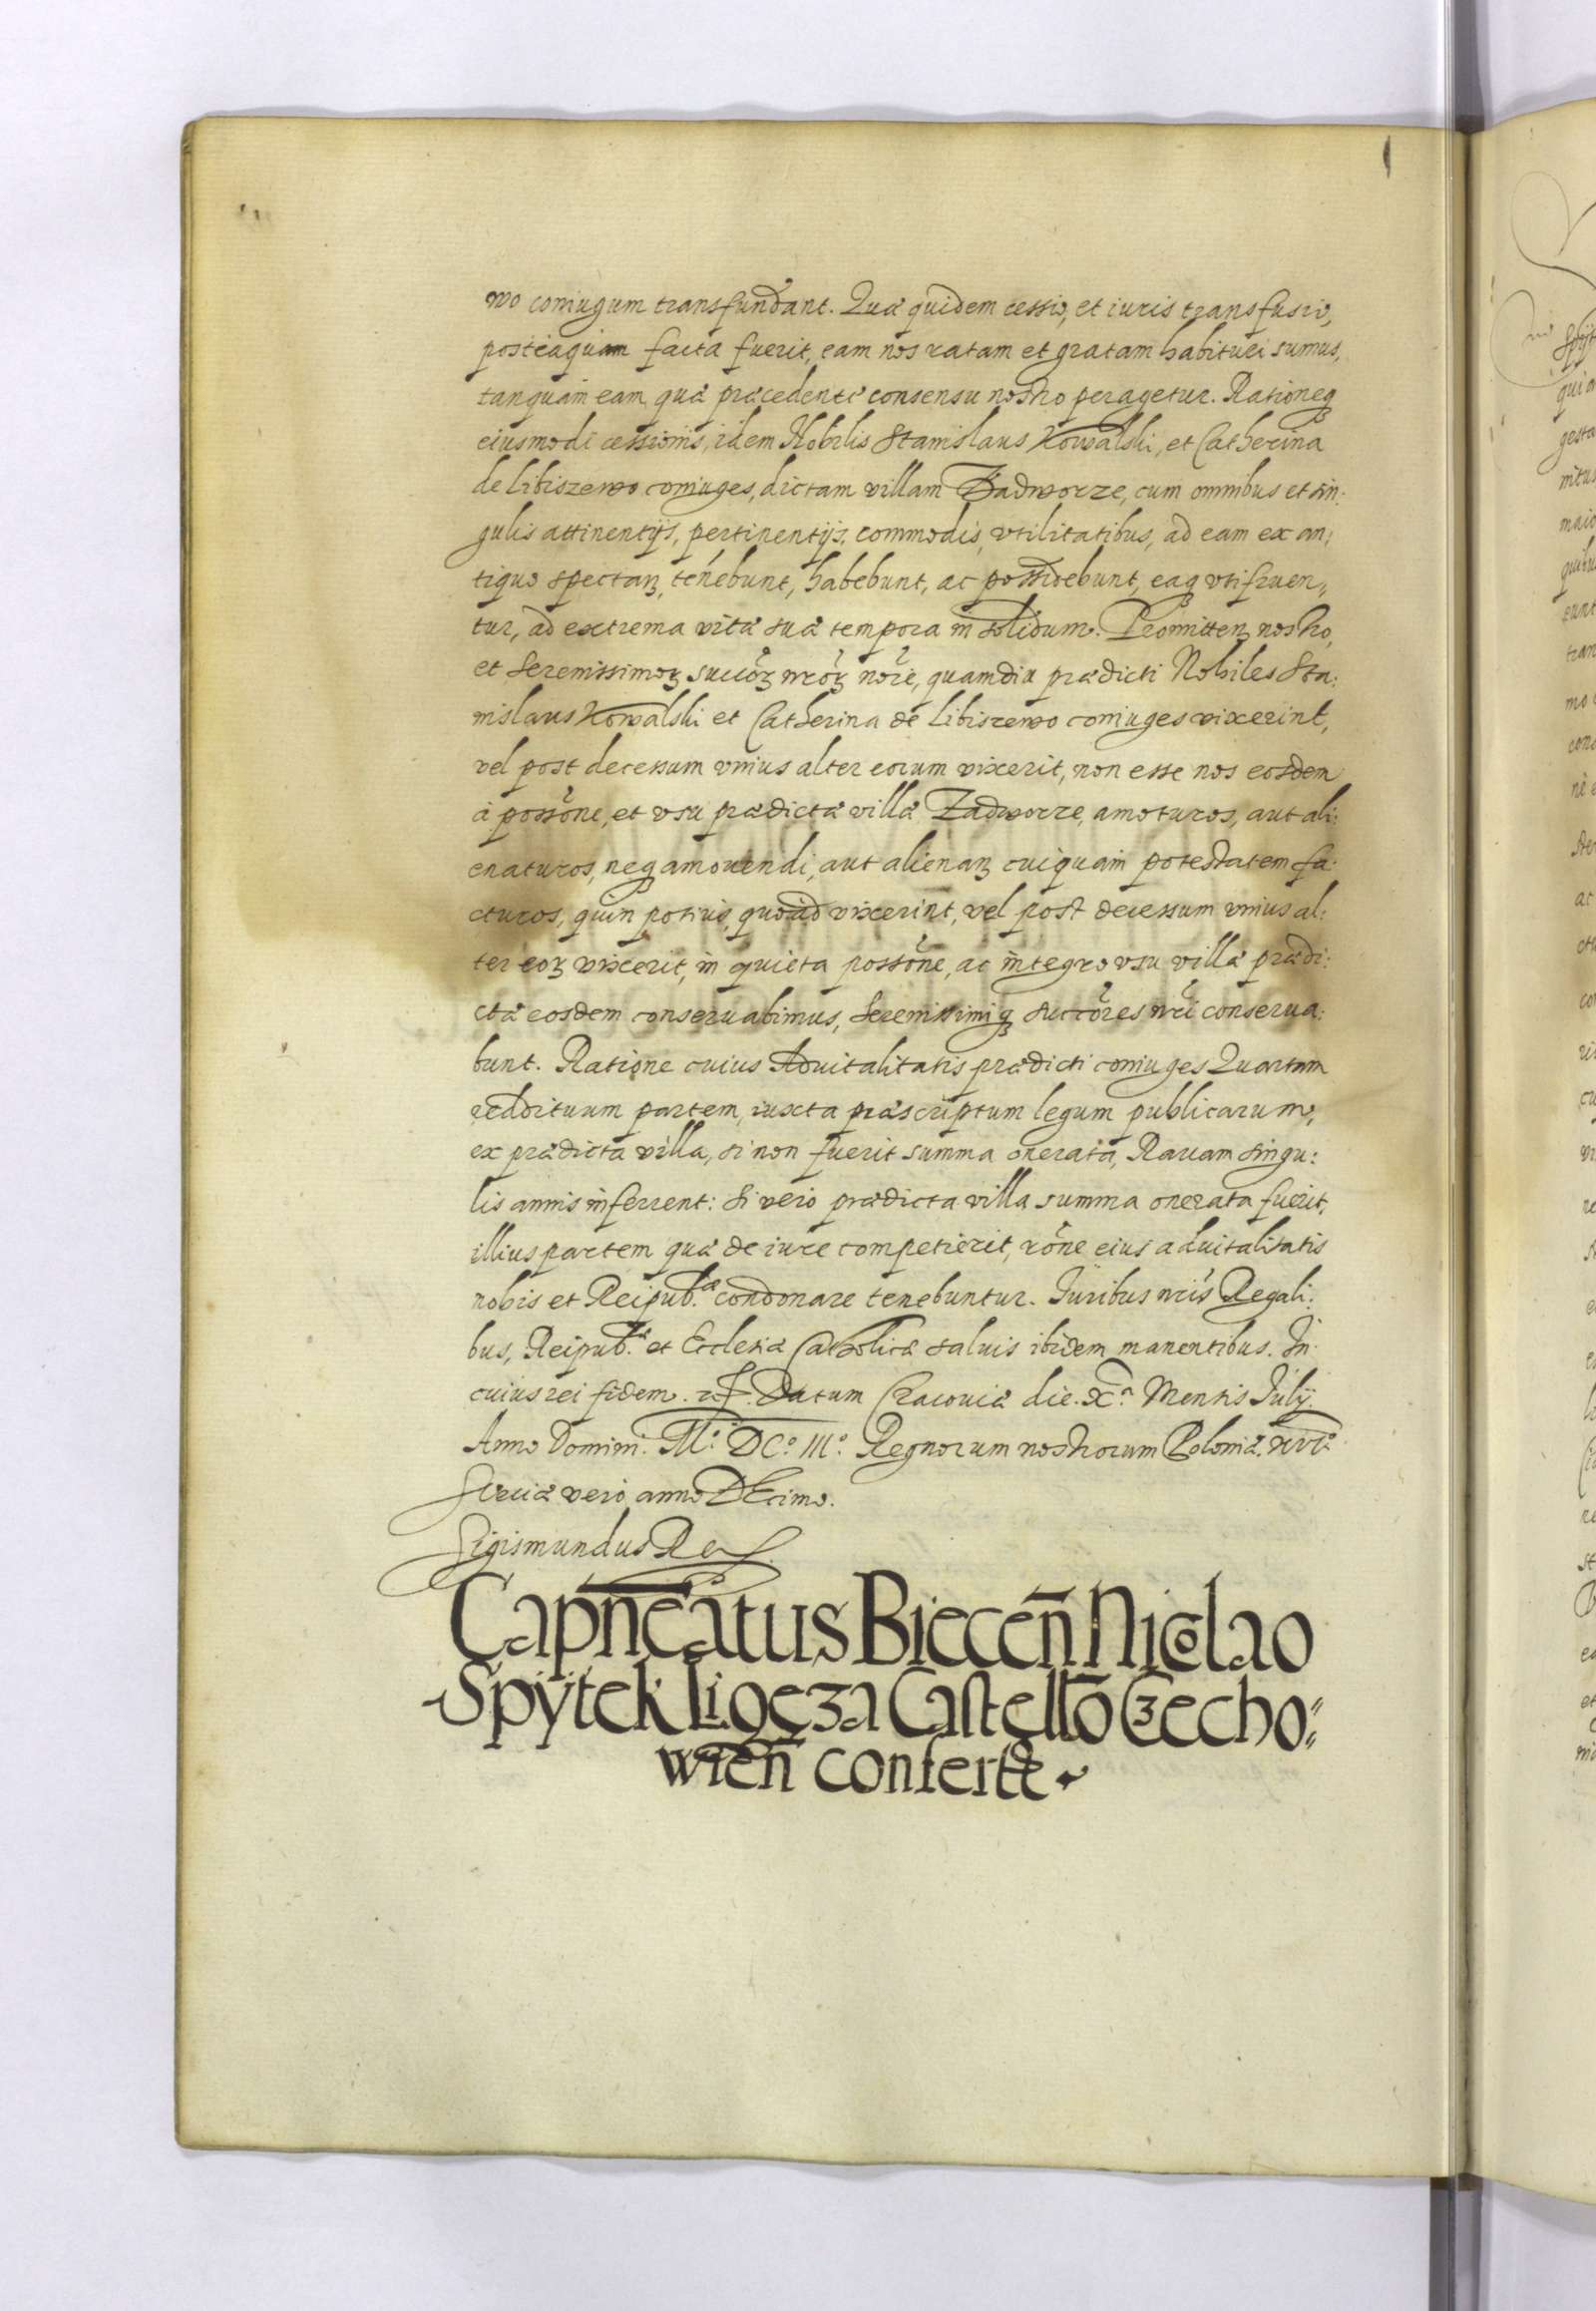 wo coniugum transfundant. Quæ quidem cessio, et iuris transfusio,
posteaquam facta fuerit, eam nos ratam et gratam habituri sumus,
tanquam eam quæ præcedente consensu nostro peragetur. Rationeq3
eiusmodi cessionis, idem Nobilis Stanislaus Kowalski, et Catherina
de Libiszewo coniuges, dictam villam Zadworze, cum omnibus et sin:
gulis attinentijs, pertinentijs, commodis, vtilitatibus, ad eam ex an:
tiquo spectañ, tenebunt, habebunt, ac possidebunt, eaq3 vtifruen,
tur, ad extrema vitæ suæ tempora in solidum. Promitteñ nostro,
et Serenissimoꝝ succõꝝ nr̃oꝝ nõie, quamdiu prædicti Nobiles Sta:
nislaus Kowalski et Catherina de Libiszewo coniuges vixerint,
vel post decessum vnius alter eorum vixerit, non esse nos eosdem
à possõne, et vsu prædictæ villæ Zadworze, amoturos, aut ali:
enaturos, neq3 amouendi, aut alienañ cuiquam potestatem fa:
cturos, quin potius, quoad vixerint, vel post decessum vnius al:
ter eoꝝ vixerit, in quieta possõne, ac integro vsu villæ prædi:
ctæ eosdem conseruabimus, Serenissimiq3 succõres nr̃i conserua:
bunt. Ratione cuius Aduitalitatis prædicti coniuges Quartam
reddituum partem, iuxta præscriptum legum publicarum,
ex prædicta villa, si non fuerit summa onerata, Rauam singu:
lis annis inferrent: Si vero prædicta villa summa onerata fuerit,
illius partem quæ de iure competierit, rõne eius aduitalitatis
nobis et Reipub.æ condonare tenebuntur. Iuribus nr̃is Regali:
bus, Reipub.æ et Ecclesiæ Catholicæ saluis ibidem manentibus. In
cuius rei fidem. Datum Cracouiæ die. X.a Mensis Iulij.
Anno Domini. M.o DC.o III.o Regnorum nostrorum Poloniæ. XVI.o
Sueciæ vero anno Decimo.
Sigismundus Rex.
Capñeatus Bieceñ Nicolao
Spytek Ligęza Castellõ Czecho:
wieñ confertr